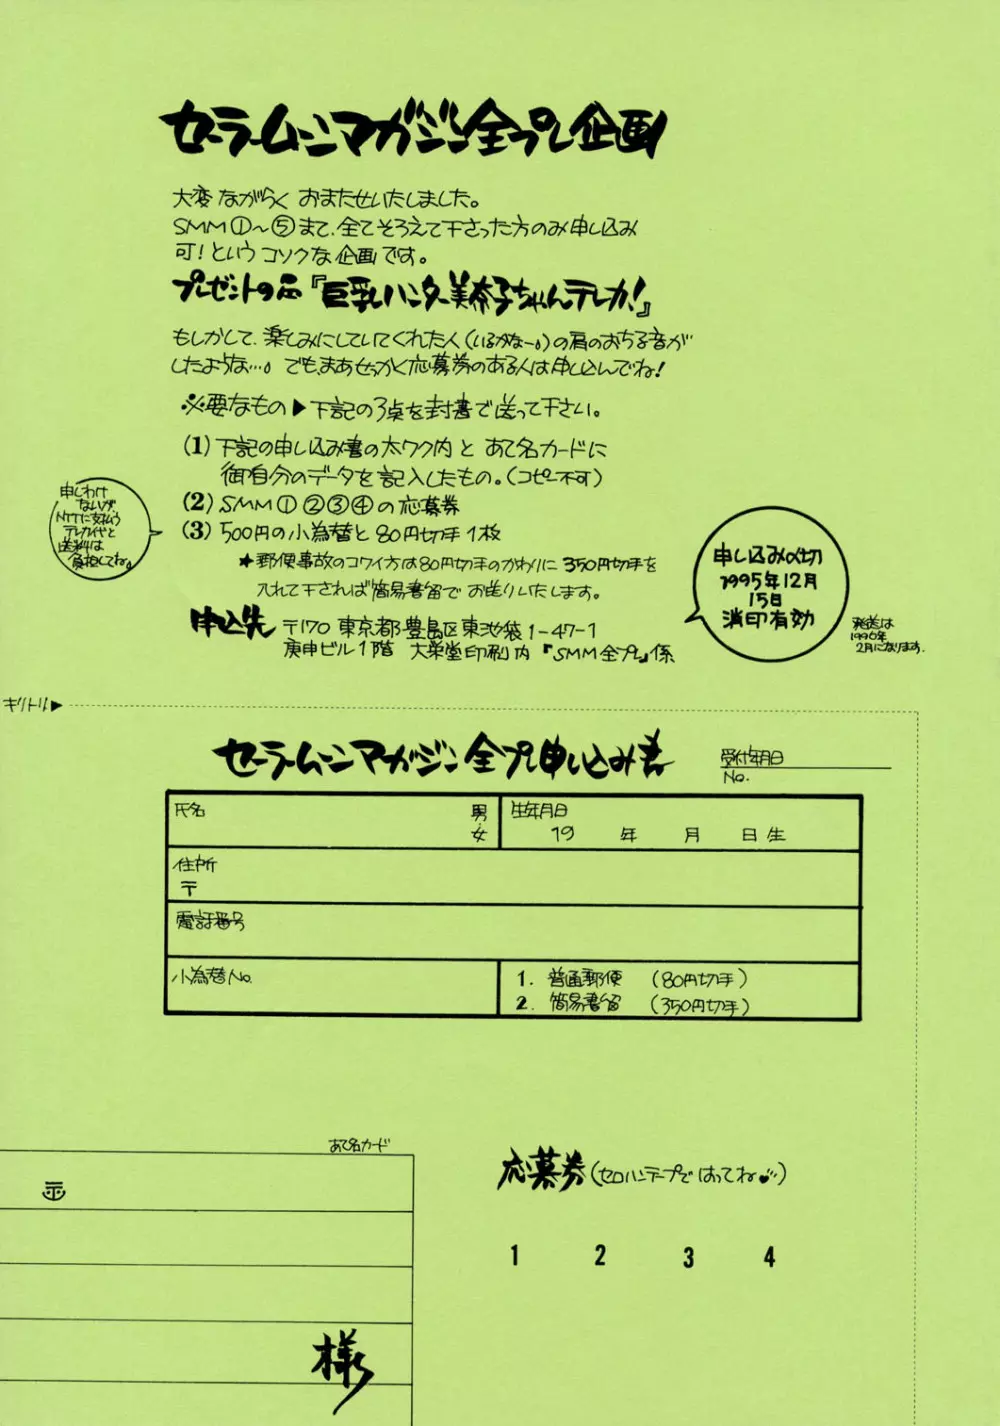 セーラームーンマガジン全プレ企画
大変ながらく おまたせいたしました。
SMM①〜⑤まで、全てそろえて下さった方のみ申し込み
可！というコソクな企画です。
プレゼントの品『巨乳ハンター美奈子ちゃんテレカ！』
もしかして、楽しみにしていてくれた人(いるかなー。)の肩のおちる音が
したような…。でも、まあせっかく応募券のある人は申し込んでね！
※要なもの▶下記の3点を封書で送って下さい。
(1) 下記の申し込み書の太ワク内と あて名カードに
御自分のデータを記入したもの。(コピー不可)
(2) SMM①②③④の応募券
(3) 500円の小為替と80円切手1枚
★郵便事故のコワイ方は80円切手のかわりに350円切手を
入れて下されば簡易書留でお送りいたします。
申しわけ
ないが
NTTに支払う
テレカ代と
送料は
負担してね。
申し込み〆切
1995年12月
15日
消印有効
発送は
1996年
2月になります。
申込先 〒170 東京都豊島区東池袋1-47-1
庚申ビル1階 大栄堂印刷内『SMM全プレ』係
キリトリ▶
セーラームーンマガジン全プレ申し込み書
受付年月日
No.
氏名 男
女
生年月日
19 年 月 日生
住所
〒
電話番号
小為替No.
1. 普通郵便 (80円切手)
2. 簡易書留 (350円切手)
あて名カード
〒
様
応募券(セロハンテープではってね)
1 2 3 4